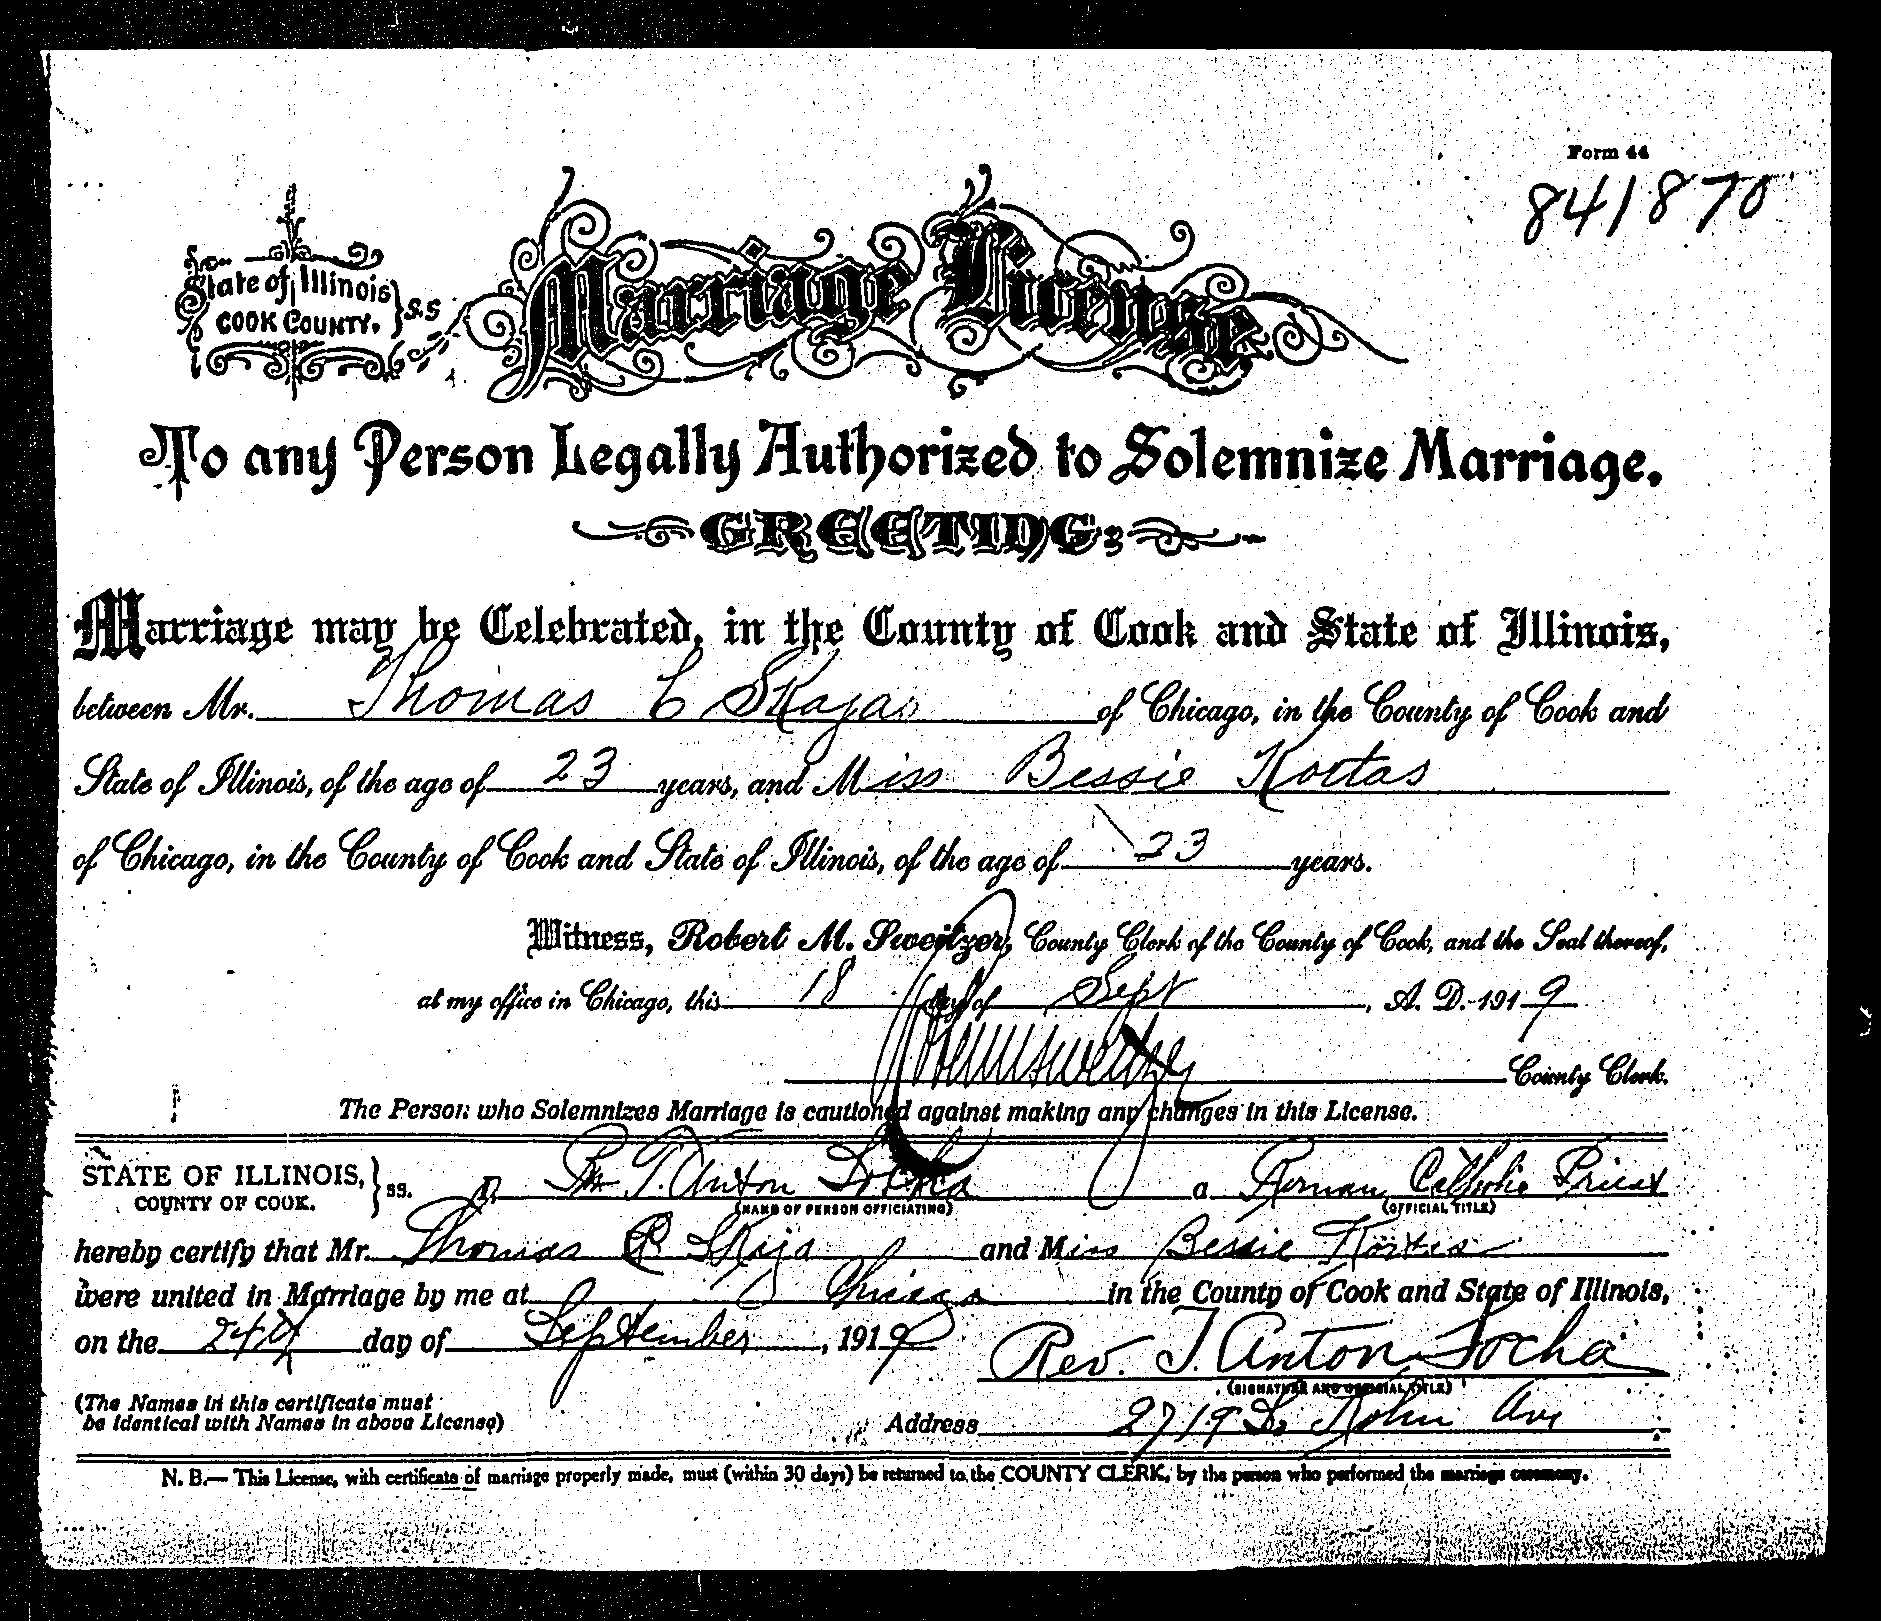 Form 44
841870
State of Illinois
COOK COUNTY. } S.S
Marriage License
To any Person Legally Authorized to Solemnize Marriage.
GREETING:
Marriage may be Celebrated, in the County of Cook and State of Illinois,
between Mr. Thomas C Skajas of Chicago, in the County of Cook and
State of Illinois, of the age of 23 years, and Miss Bessie Kortas
of Chicago, in the County of Cook and State of Illinois, of the age of 23 years.
Witness, Robert M. Sweitzer, County Clerk of the County of Cook, and the Seal thereof,
at my office in Chicago, this 18 day of Sept, A. D. 1919
County Clerk.
The Person who Solemnizes Marriage is cautioned against making any changes in this License.
STATE OF ILLINOIS, } ss. I, T. Anton Socha a Roman Catholic Priest
COUNTY OF COOK. (NAME OF PERSON OFFICIATING) (OFFICIAL TITLE)
hereby certify that Mr. Thomas Skaja and Miss Bessie Kortas
were united in Marriage by me at Chicago in the County of Cook and State of Illinois,
on the 24th day of September, 1919 Rev. T. Anton Socha
(SIGNATURE AND OFFICIAL TITLE)
(The Names in this certificate must
be identical with Names in above License) Address 2719 So Kolin Ave
N. B.— This License, with certificate of marriage properly made, must (within 30 days) be returned to the COUNTY CLERK, by the person who performed the marriage ceremony.